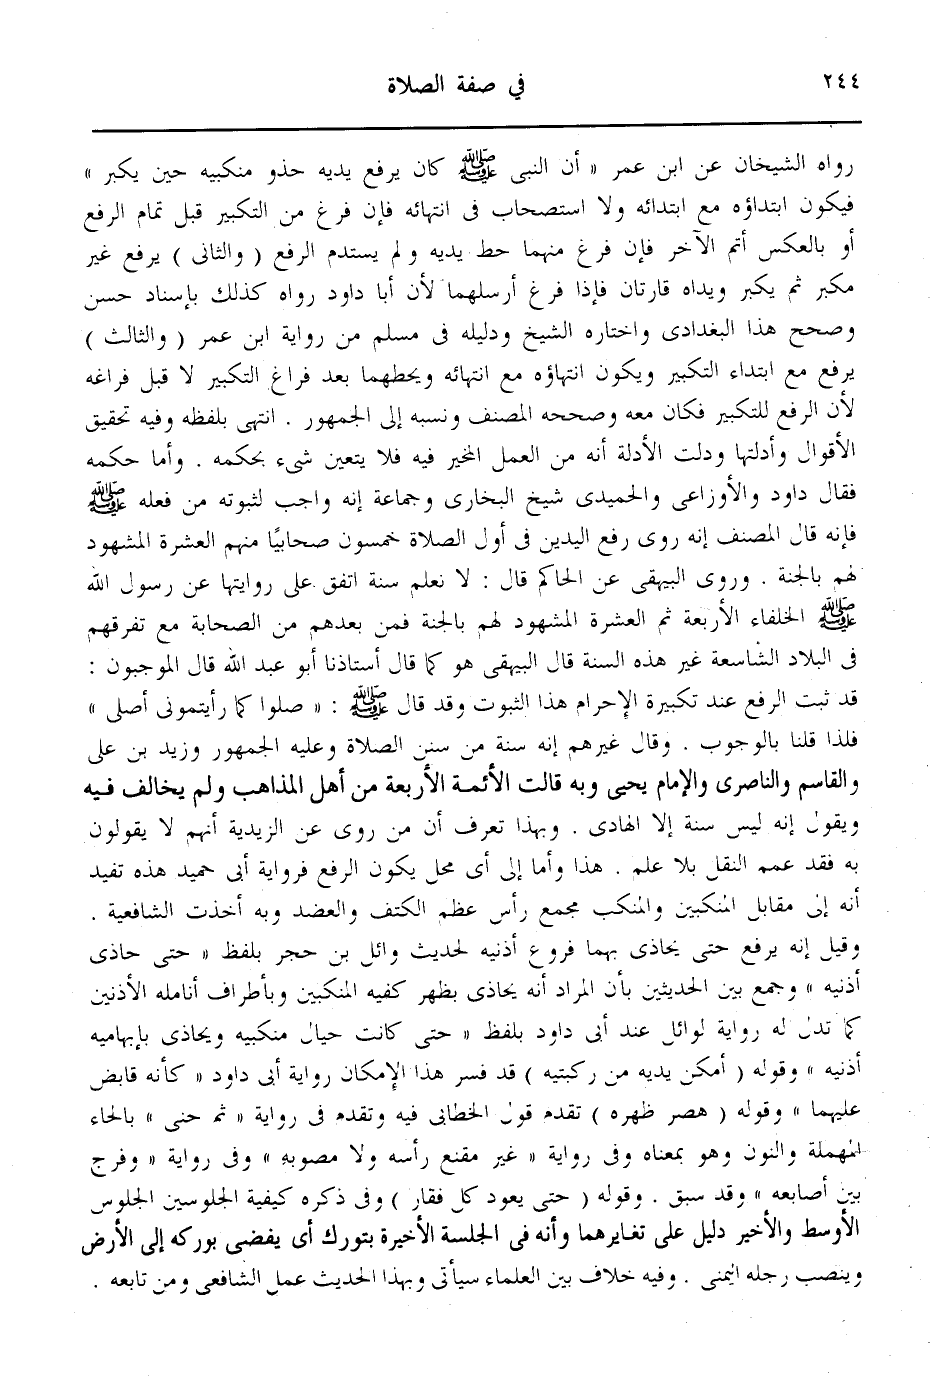 ٢٤٤
في صفة الصلاة
رواه الشيخان عن ابن عمر « أن النبى ﷺ كان يرفع يديه حذو منكبيه حين يكبر »
فيكون ابتداؤه مع ابتدائه ولا استصحاب فى انتهائه فإن فرغ من التكبير قبل تمام الرفع
أو بالعكس أتم الآخر فإن فرغ منهما حط يديه ولم يستدم الرفع ( والثانى ) يرفع غير
مكبر ثم يكبر ويداه قارتان فإذا فرغ أرسلهما لأن أبا داود رواه كذلك بإسناد حسن
وصحح هذا البغدادى واختاره الشيخ ودليله فى مسلم من رواية ابن عمر ( والثالث )
يرفع مع ابتداء التكبير ويكون انتهاؤه مع انتهائه ويحطهما بعد فراغ التكبير لا قبل فراغه
لأن الرفع للتكبير فكان معه وصححه المصنف ونسبه إلى الجمهور . انتهى بلفظه وفيه تحقيق
الأقوال وأدلتها ودلت الأدلة أنه من العمل المخير فيه فلا يتعين شىء بحكمه . وأما حكمه
فقال داود والأوزاعى والحميدى شيخ البخارى وجماعة إنه واجب لثبوته من فعله ﷺ
فإنه قال المصنف إنه روى رفع اليدين فى أول الصلاة خمسون صحابيًا منهم العشرة المشهود
لهم بالجنة . وروى البيهقى عن الحاكم قال : لا نعلم سنة اتفق على روايتها عن رسول الله
ﷺ الخلفاء الأربعة ثم العشرة المشهود لهم بالجنة فمن بعدهم من الصحابة مع تفرقهم
فى البلاد الشاسعة غير هذه السنة قال البيهقى هو كما قال أستاذنا أبو عبد الله قال الموجبون :
قد ثبت الرفع عند تكبيرة الإحرام هذا الثبوت وقد قال ﷺ : « صلوا كما رأيتمونى أصلى »
فلذا قلنا بالوجوب . وقال غيرهم إنه سنة من سنن الصلاة وعليه الجمهور وزيد بن على
والقاسم والناصرى والإمام يحيى وبه قالت الأئمة الأربعة من أهل المذاهب ولم يخالف فيه
ويقول إنه ليس سنة إلا الهادى . وبهذا تعرف أن من روى عن الزيدية أنهم لا يقولون
به فقد عمم النقل بلا علم . هذا وأما إلى أى محل يكون الرفع فرواية أبى حميد هذه تفيد
أنه إلى مقابل المنكبين والمنكب مجمع رأس عظم الكتف والعضد وبه أخذت الشافعية .
وقيل إنه يرفع حتى يحاذى بهما فروع أذنيه لحديث وائل بن حجر بلفظ « حتى حاذى
أذنيه » وجمع بين الحديثين بأن المراد أنه يحاذى بظهر كفيه المنكبين وبأطراف أنامله الأذنين
كما تدل له رواية لوائل عند أبى داود بلفظ « حتى كانت حيال منكبيه ويحاذى بإبهاميه
أذنيه » وقوله ( أمكن يديه من ركبتيه ) قد فسر هذا الإمكان رواية أبى داود « كأنه قابض
عليهما » وقوله ( هصر ظهره ) تقدم قول الخطابى فيه وتقدم فى رواية « ثم حنى » بالحاء
المهملة والنون وهو بمعناه وفى رواية « غير مقنع رأسه ولا مصوبه » وفى رواية « وفرج
بين أصابعه » وقد سبق . وقوله ( حتى يعود كل فقار ) وفى ذكره كيفية الجلوسين الجلوس
الأوسط والأخير دليل على تغايرهما وأنه فى الجلسة الأخيرة بتورك أى يفضى بوركه إلى الأرض
وينصب رجله اليمنى . وفيه خلاف بين العلماء سيأتى وبهذا الحديث عمل الشافعى ومن تابعه .